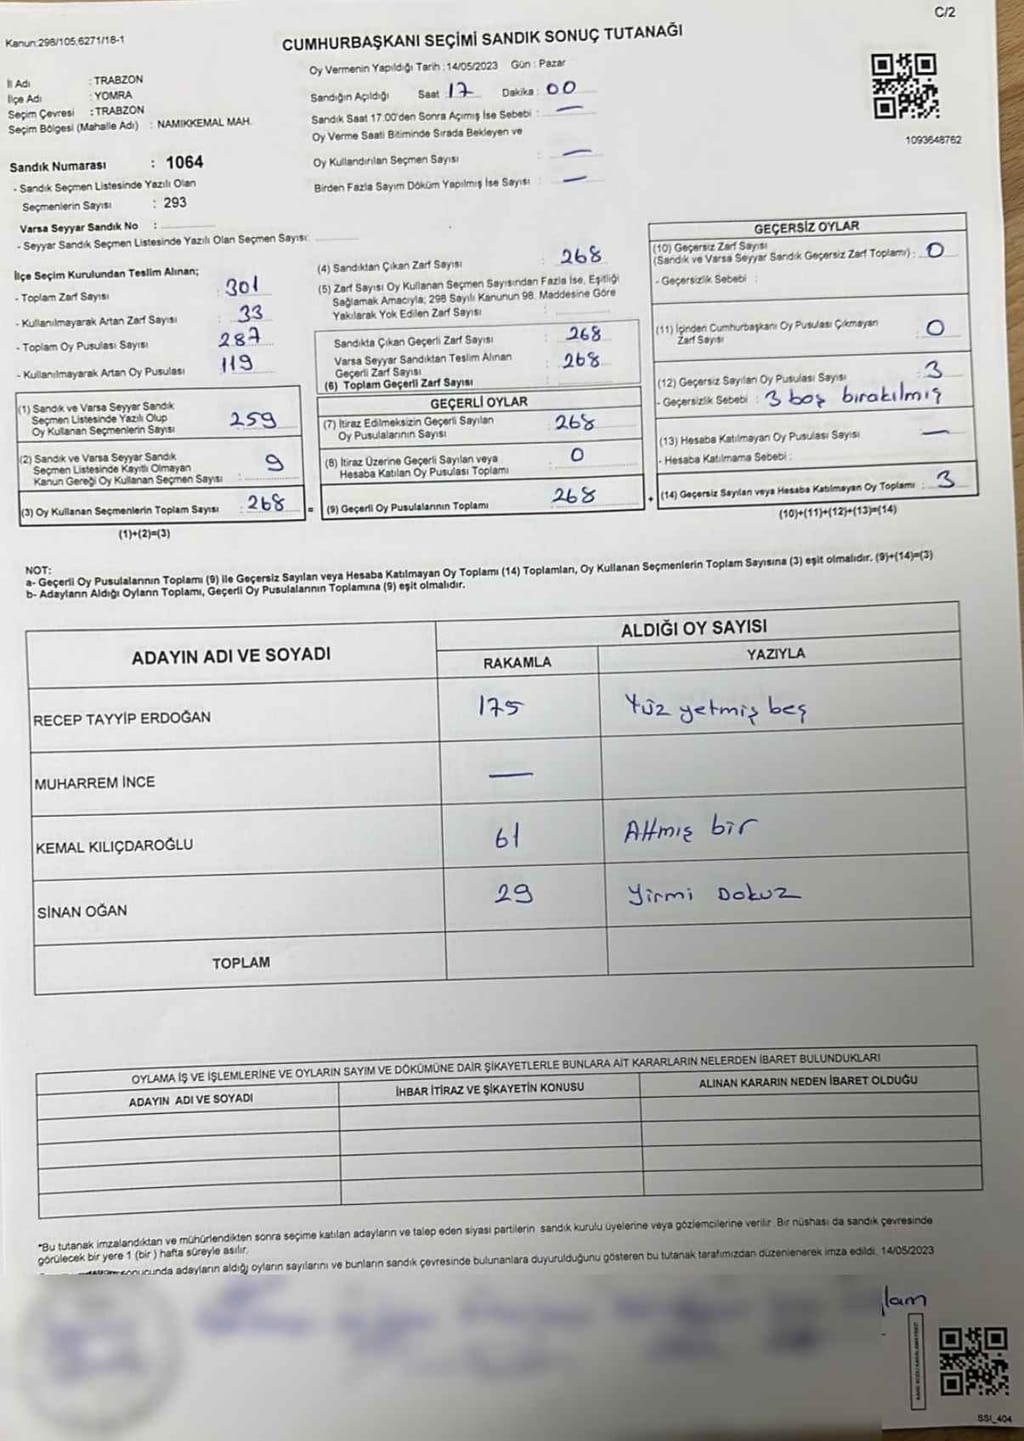 C/2
Kanun:298/105,6271/18-1
CUMHURBAŞKANI SEÇİMİ SANDIK SONUÇ TUTANAĞI
İl Adı : TRABZON
İlçe Adı : YOMRA
Seçim Çevresi : TRABZON
Seçim Bölgesi (Mahalle Adı) : NAMIKKEMAL MAH.
Sandık Numarası : 1064
- Sandık Seçmen Listesinde Yazılı Olan
Seçmenlerin Sayısı : 293
Varsa Seyyar Sandık No :
- Seyyar Sandık Seçmen Listesinde Yazılı Olan Seçmen Sayısı:
Oy Vermenin Yapıldığı Tarih :14/05/2023 Gün : Pazar
Sandığın Açıldığı Saat : 17 Dakika : 00
Sandık Saat 17.00'den Sonra Açımış İse Sebebi : —
Oy Verme Saati Bitiminde Sırada Bekleyen ve
Oy Kullandırılan Seçmen Sayısı : —
Birden Fazla Sayım Döküm Yapılmış İse Sayısı : —
1093648762
İlçe Seçim Kurulundan Teslim Alınan;
- Toplam Zarf Sayısı : 301
- Kullanılmayarak Artan Zarf Sayısı : 33
- Toplam Oy Pusulası Sayısı : 287
- Kullanılmayarak Artan Oy Pusulası : 119
(1) Sandık ve Varsa Seyyar Sandık
Seçmen Listesinde Yazılı Olup
Oy Kullanan Seçmenlerin Sayısı : 259
(2) Sandık ve Varsa Seyyar Sandık
Seçmen Listesinde Kayıtlı Olmayan
Kanun Gereği Oy Kullanan Seçmen Sayısı : 9
(3) Oy Kullanan Seçmenlerin Toplam Sayısı : 268
(1)+(2)=(3)
(4) Sandıktan Çıkan Zarf Sayısı : 268
(5) Zarf Sayısı Oy Kullanan Seçmen Sayısından Fazla İse, Eşitliği
Sağlamak Amacıyla; 298 Sayılı Kanunun 98. Maddesine Göre
Yakılarak Yok Edilen Zarf Sayısı :
Sandıkta Çıkan Geçerli Zarf Sayısı : 268
Varsa Seyyar Sandıktan Teslim Alınan
Geçerli Zarf Sayısı : 268
(6) Toplam Geçerli Zarf Sayısı
GEÇERLİ OYLAR
(7) İtiraz Edilmeksizin Geçerli Sayılan
Oy Pusulalarının Sayısı : 268
(8) İtiraz Üzerine Geçerli Sayılan veya
Hesaba Katılan Oy Pusulası Toplamı : 0
= (9) Geçerli Oy Pusulalarının Toplamı : 268
GEÇERSİZ OYLAR
(10) Geçersiz Zarf Sayısı
(Sandık ve Varsa Seyyar Sandık Geçersiz Zarf Toplamı) : 0
- Geçersizlik Sebebi :
(11) İçinden Cumhurbaşkanı Oy Pusulası Çıkmayan
Zarf Sayısı : 0
(12) Geçersiz Sayılan Oy Pusulası Sayısı : 3
- Geçersizlik Sebebi : 3 boş bırakılmış
(13) Hesaba Katılmayan Oy Pusulası Sayısı : —
- Hesaba Katılmama Sebebi :
+ (14) Geçersiz Sayılan veya Hesaba Katılmayan Oy Toplamı : 3
(10)+(11)+(12)+(13)=(14)
NOT:
a- Geçerli Oy Pusulalarının Toplamı (9) ile Geçersiz Sayılan veya Hesaba Katılmayan Oy Toplamı (14) Toplamları, Oy Kullanan Seçmenlerin Toplam Sayısına (3) eşit olmalıdır. (9)+(14)=(3)
b- Adayların Aldığı Oyların Toplamı, Geçerli Oy Pusulalarının Toplamına (9) eşit olmalıdır.
ADAYIN ADI VE SOYADI
ALDIĞI OY SAYISI
RAKAMLA YAZIYLA
RECEP TAYYİP ERDOĞAN 175 Yüz yetmiş beş
MUHARREM İNCE —
KEMAL KILIÇDAROĞLU 61 Altmış bir
SİNAN OĞAN 29 Yirmi Dokuz
TOPLAM
OYLAMA İŞ VE İŞLEMLERİNE VE OYLARIN SAYIM VE DÖKÜMÜNE DAİR ŞİKAYETLERLE BUNLARA AİT KARARLARIN NELERDEN İBARET BULUNDUKLARI
ADAYIN ADI VE SOYADI İHBAR İTİRAZ VE ŞİKAYETİN KONUSU ALINAN KARARIN NEDEN İBARET OLDUĞU
*Bu tutanak imzalandıktan ve mühürlendikten sonra seçime katılan adayların ve talep eden siyasi partilerin sandık kurulu üyelerine veya gözlemcilerine verilir. Bir nüshası da sandık çevresinde
görülecek bir yere 1 (bir) hafta süreyle asılır.
sonucunda adayların aldığı oyların sayılarını ve bunların sandık çevresinde bulunanlara duyurulduğunu gösteren bu tutanak tarafımızdan düzenlenerek imza edildi. 14/05/2023
lam
SSI_404